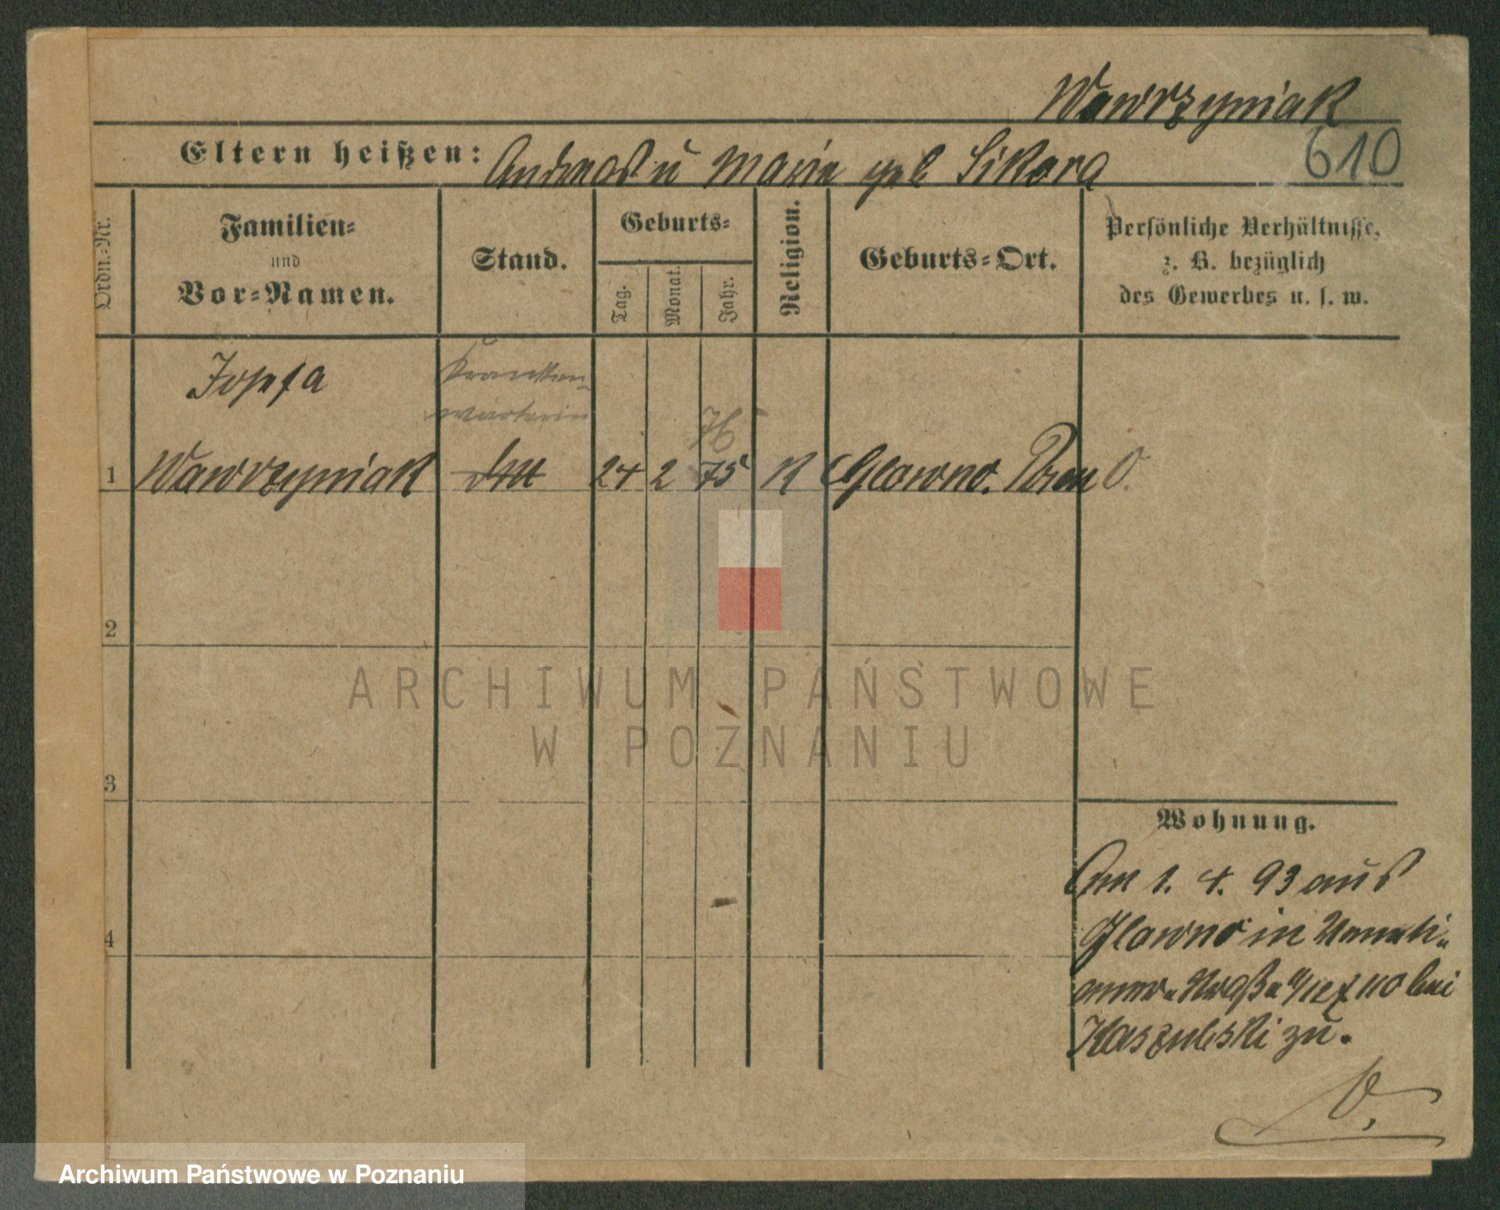 Wawrzyniak
610
Eltern heißen: Andreas u Marie geb Sikora
Ordn.-Nr.
Familien-
und
Vor-Namen.
Stand.
Geburts-
Tag.
Monat.
Jahr.
Religion.
Geburts-Ort.
Persönliche Verhältnisse,
z. B. bezüglich
des Gewerbes u. s. w.
Josefa
Kranken-
wärterin
76
1 Wawrzyniak 24 2 75 K Glowno. Posen O.
2
3
4
Wohnung.
Am 1. 4. 93 aus
Glowno in Veneti-
aner-Straße 110 bei
Kaszubski zu.
ARCHIWUM PAŃSTWOWE
W POZNANIU
Archiwum Państwowe w Poznaniu